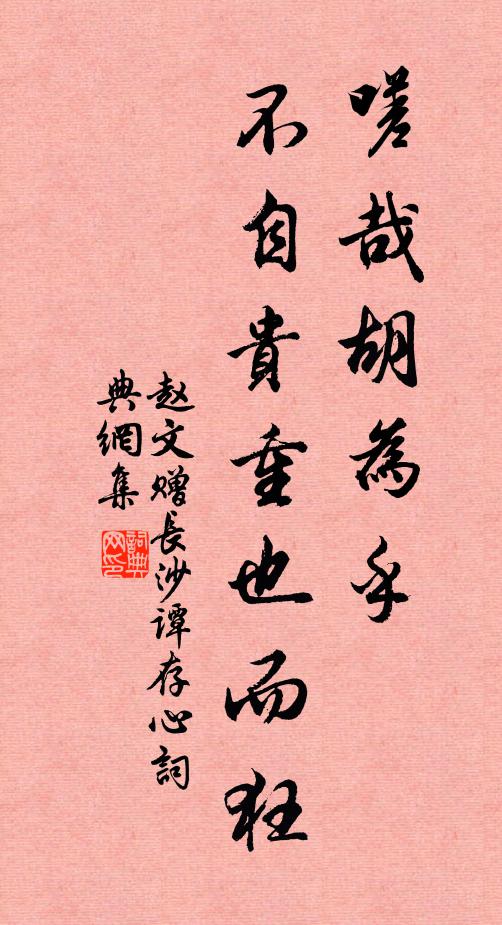 嗟哉胡為乎
不自貴重也而狂
赵文赠長沙谭存心詞
典網集
詞典
网印